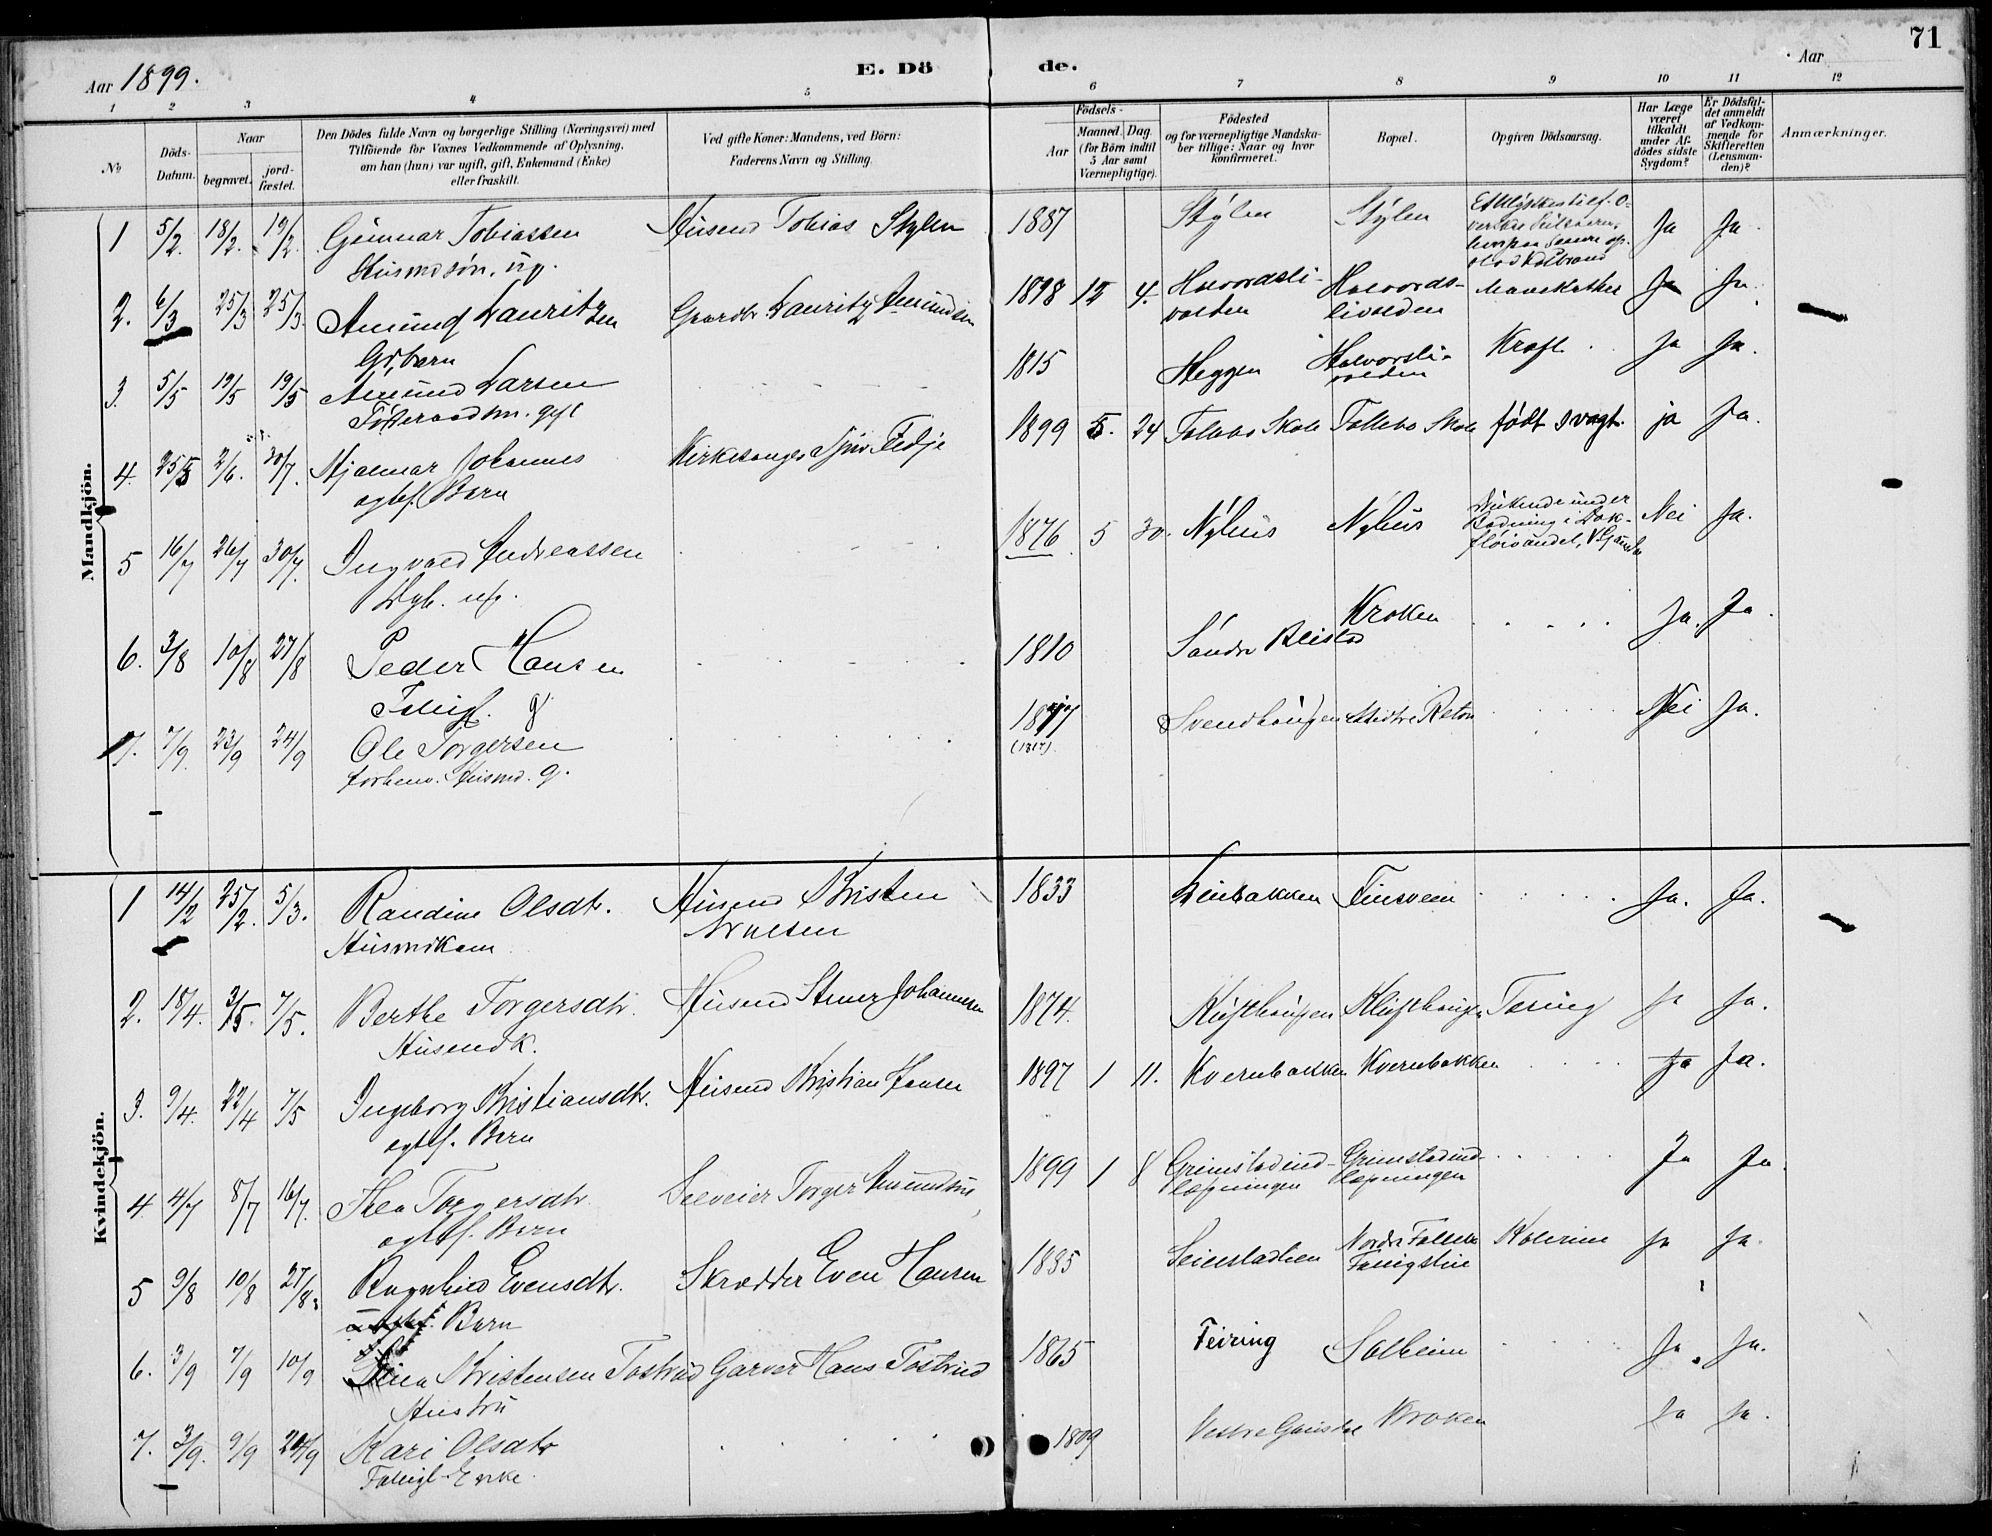 71
Aar 1899.
E. Dö de.
Aar
1 2 3 4 5 6 7 8 9 10 11 12
No
Döds-
Datum.
Naar
begravet.
jord-
fæstet.
Den Dödes fulde Navn og borgerlige Stilling (Næringsvei) med
Tilföiende for Voxnes Vedkommende af Oplysning,
om han (hun) var ugift, gift, Enkemand (Enke)
eller fraskilt.
Ved gifte Koner: Mandens, ved Börn:
Faderens Navn og Stilling.
Födsels-
Aar
Maaned. Dag.
(for Börn indtil
5 Aar samt
Værnepligtige).
Födested
og for værnepligtige Mandska-
ber tillige: Naar og hvor
konfirmeret.
Bopæl.
Opgiven Dödsaarsag.
Har Læge
været
tilkaldt
under Af-
dödes sidste
Sygdom?
Er Dödsfal-
det anmeldt
af Vedkom-
mende for
Skifteretten
(Lensman-
den)?
Anmærkninger.
Mandkjön.
1 5/2. 18/2. 19/2. Gunnar Tobiassen Husmd Tobias Stylen 1887 Stylen Stylen Ja Ja.
Husmdsön. ug.
2. 6/3 25/3 25/3. Amund Lauritzen Gaardbr Lauritz Amundsen 1898 12 4. Halvordsli- Halvords- Mavekathar Ja Ja.
volden livolden
Gdbarn
3. 5/5 19/5 19/5 Amund Larsen 1815 Heggen Halvorsli- Kræft Ja Ja.
volden
Föderaadsm. gift
4. 25/5 2/6. 30/7. Hjalmar Johannes Kirkesanger Sjur Fedje 1899 5. 24 Follebo Skole Follebo Skole födt svagt. ja Ja.
ægtef. Barn
5 16/7 26/7 30/7. Ingvald Andreassen 1876 5 30. Nyhus Nyhus Druknede under Nei Ja.
Badning i Dok-
flöivandet, V. Gausdal
Dgb. ug.
6. 3/8 10/8 27/8 Peder Hansen 1810 Söndre Bleistad Kroken Ja. Ja.
g
7. 7/9. 23/9 24/9 Ole Torgersen 1817 Svendhaugen Nei Ja.
(1817).
forhenv. Husmd. g.
Kvindekjön.
1 14/2 25/2. 5/3. Randine Olsdtr. Husmd Kristen 1833 Leinbakken Finsveen Ja. Ja.
Husmdkone
2. 18/4. 3/5. 7/5. Berthe Torgersdtr. Husmd Johannesen 1874. Klufthaugen Klufthaugen Tæring Ja Ja.
Husmdk.
3. 9/4. 22/4 7/5 Ingeborg Kristiansdtr. Husmd Kristian Hansen 1897 1 11. Kvernbakken Kvernbakken Ja Ja.
ægtef. Barn
4 4/7 8/7 16/7. Torgersdtr. Selveier Torger Amundsen 1899 1 8 Grimstadind- Grimstadind- Ja Ja.
læpningen læpningen
ægtef. Barn
5 9/8 10/8 27/8. Ragnhild Evensdtr. Skrædder Even Hansen 1885 Seielstadlien Nordre Follebo Kolerine Ja Ja.
Fattigstue
Barn
6. 3/9 7/9 10/9 Kristensen Tostrud Garver Hans Tostrud 1865 Feiring Solheim Ja. Ja.
Hustru
7. 3/9. 9/9 24/9 Kari Olsdtr 1809 Vestre Gausdal Kroken Ja Ja.
Fattigl. Enke.